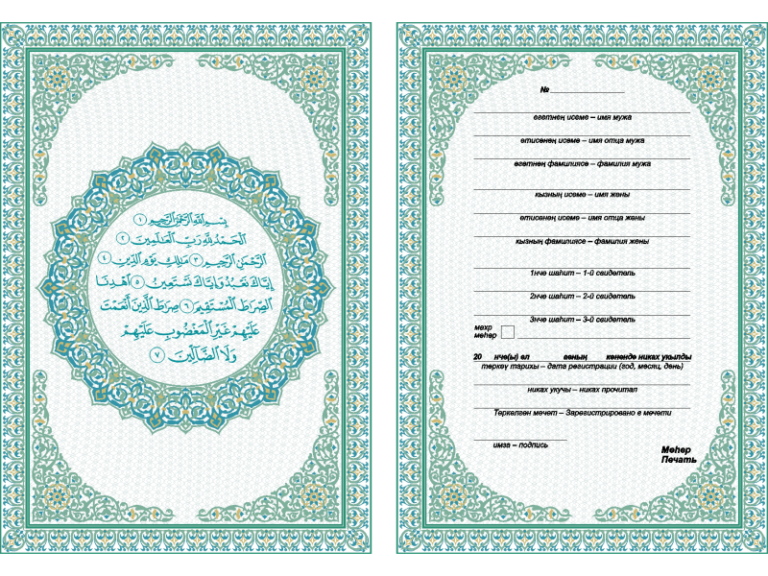 بسم الله الرحمن الرحيم ١
الحمد لله رب العالمين ٢
الرحمن الرحيم ٣ مالك يوم الدين ٤
إياك نعبد وإياك نستعين ٥ اهدنا
الصراط المستقيم ٦ صراط الذين أنعمت
عليهم غير المغضوب عليهم
ولا الضالين ٧
№ ________________
егетнең исеме – имя мужа
әтисенең исеме – имя отца мужа
егетнең фамилиясе – фамилия мужа
кызның исеме – имя жены
әтисенең исеме – имя отца жены
кызның фамилиясе – фамилия жены
1нче шаһит – 1-й свидетель
2нче шаһит – 2-й свидетель
3нче шаһит – 3-й свидетель
мехр
меһер
20 нче(ы) ел аеның көнендә никах укылды
теркәү тарихы – дата регистрации (год, месяц, день)
никах укучы – никах прочитал
Теркәлгән мечет – Зарегистрировано в мечети
имза – подпись
Меһер
Печать